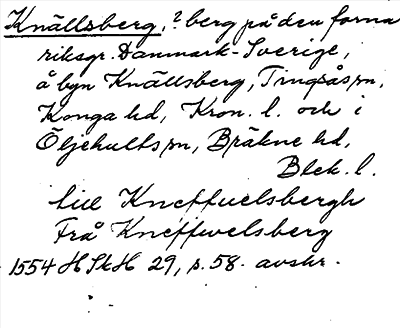 Knällsberg, ? berg på den forna
riksgr. Danmark-Sverige,
å byn Knällsberg, Tingsås sn,
Konga hd, Kron. l. och i
Öljehults sn, Bräkne hd,
Blek. l.
till Kneffuelsbergh
Från Kneffwelsberg
1554 HSkH 29, s. 58. avskr.